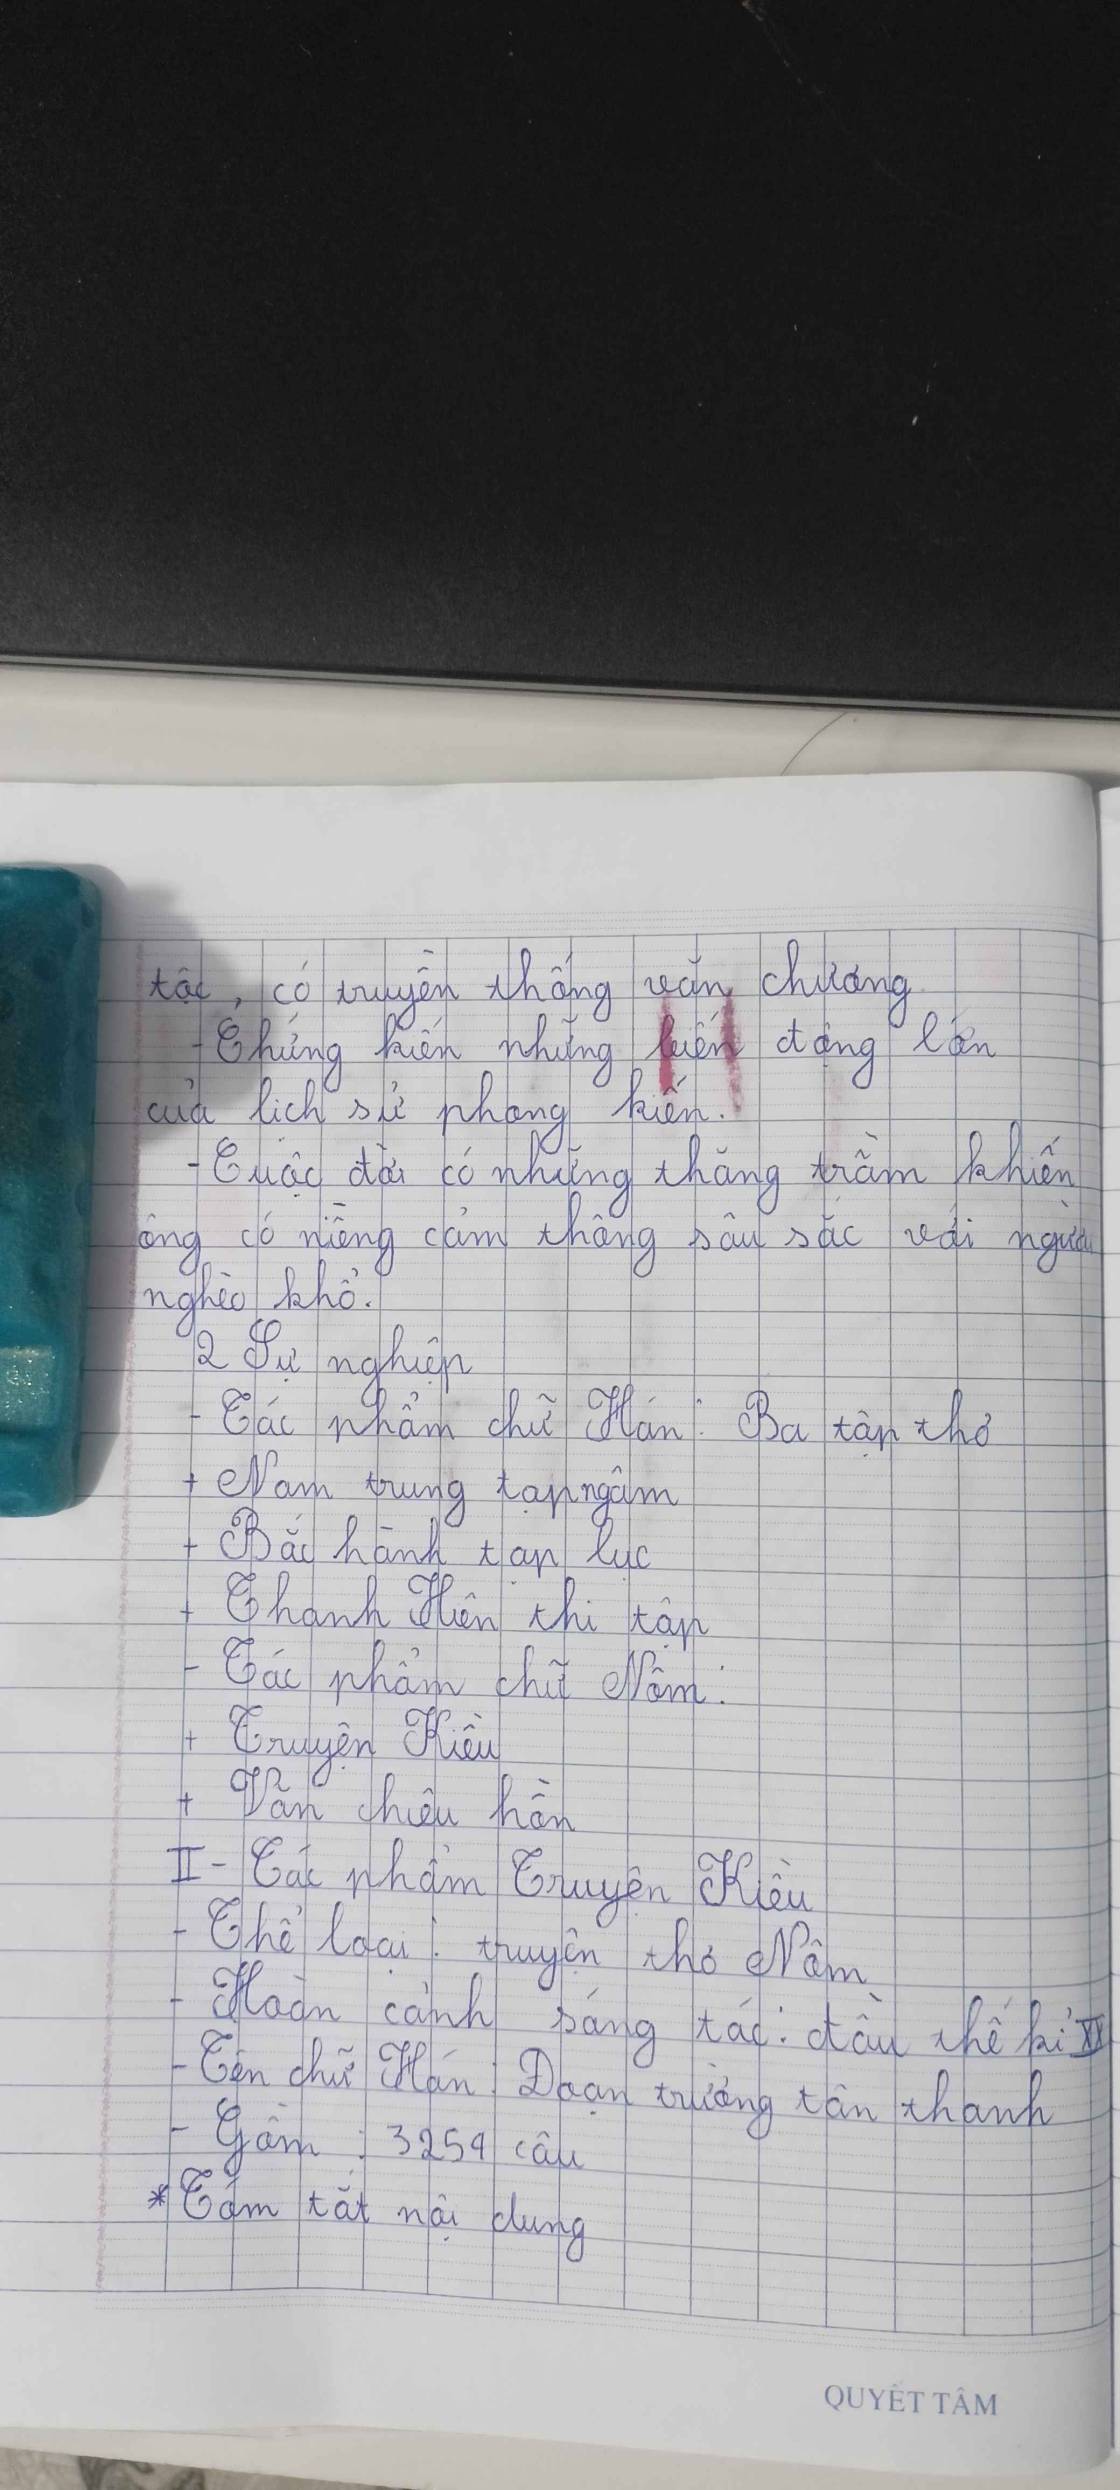 tộc, có truyền thống văn chương
- Chứng kiến những biến động lớn
của lịch sử phong kiến.
- Cuộc đời có những thăng trầm khiến
ông có niềng cảm thông sâu sắc với người
nghèo khổ.
2 Sự nghiệp
- Tác phẩm chữ Hán: Ba tập thơ
+ Nam trung tạp ngâm
+ Bắc hành tạp lục
+ Thanh Hiên thi tập
- Tác phẩm chữ Nôm:
+ Truyện Kiều
+ Văn chiêu hồn
II- Tác phẩm Truyện Kiều
- Thể loại: truyện thơ Nôm
- Hoàn cảnh sáng tác: đầu thế kỉ
- Tên chữ Hán: Đoạn trường tân thanh
- Gồm: 3254 câu
* Tóm tắt nội dung
QUYẾT TÂM